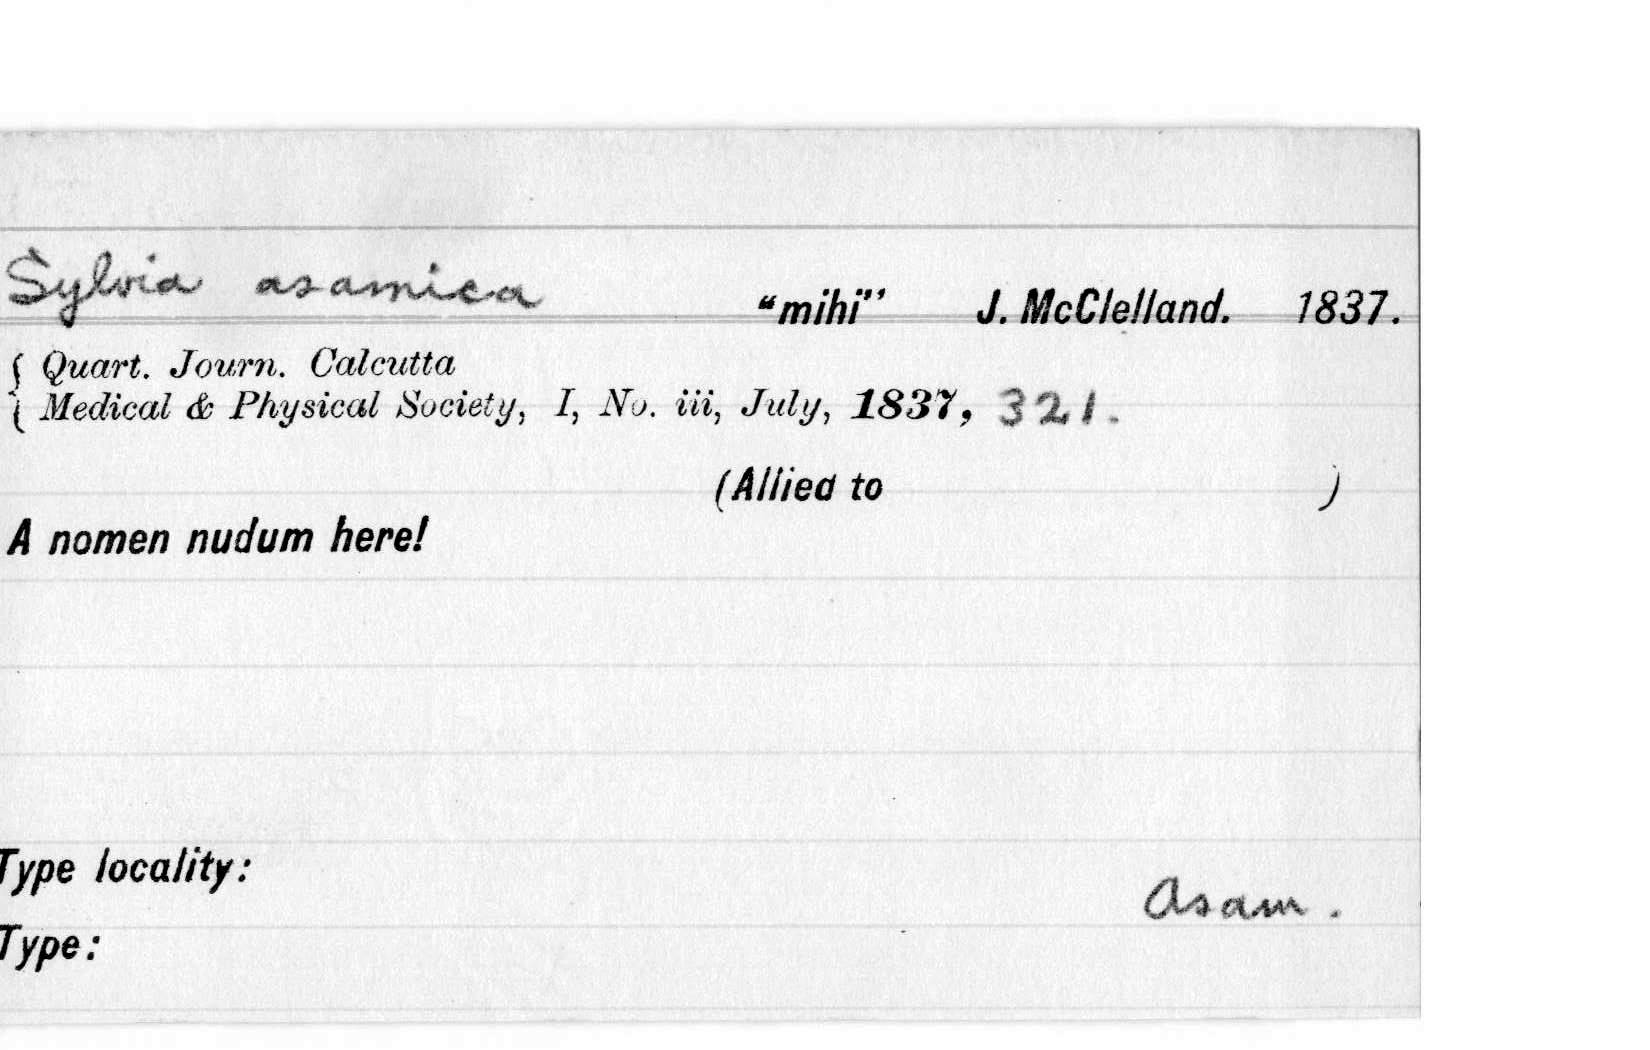 Sylvia asamica "mihi" J. McClelland. 1837.
{ Quart. Journ. Calcutta
{ Medical & Physical Society, I, No. iii, July, 1837, 321.
(Allied to )
A nomen nudum here!
Type locality:
Asam.
Type: